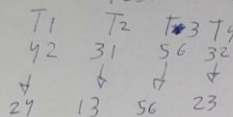 T1 T2 T3 T4
42 31 56 32
↓ ↓ ↓ ↓
24 13 56 23